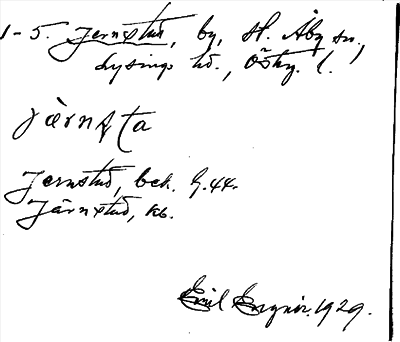 1-5. Jernstad, by, St. Åby sn.,
Lysings hd., Östg. l.
jàrnsta
Jernstad, bek. G. 44.
Järnstad, kb.
Emil 1929.